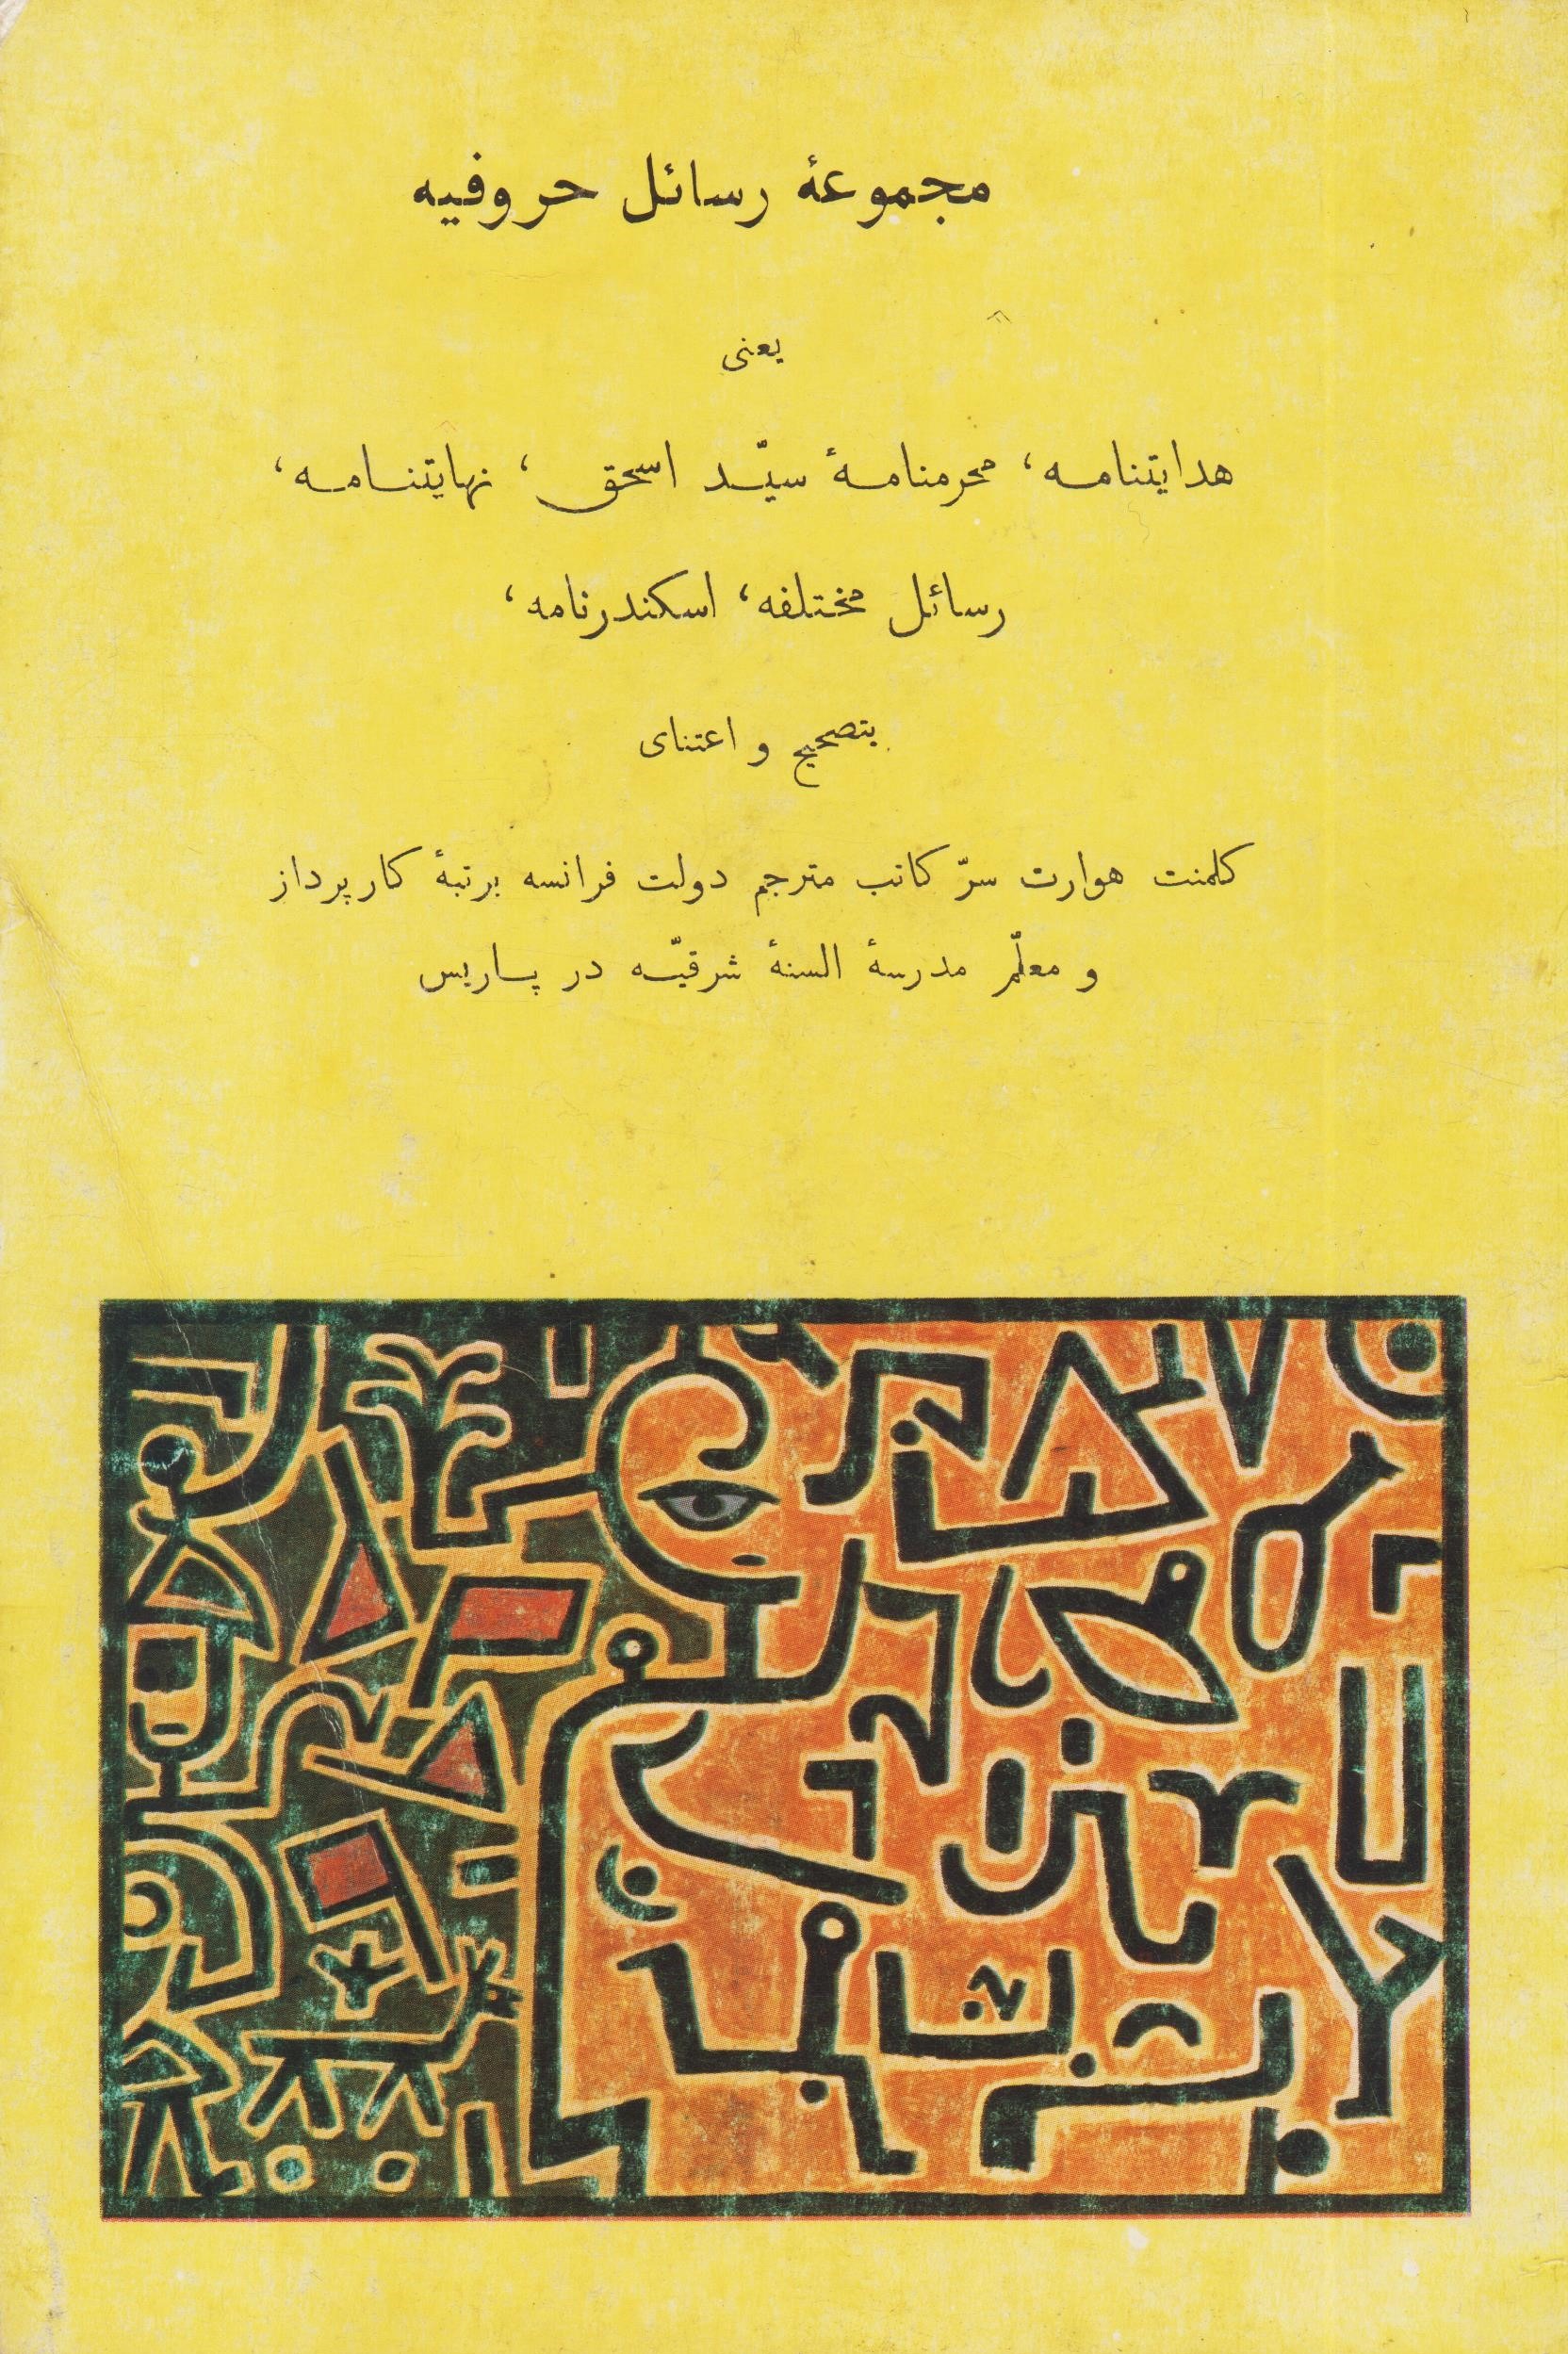 مجموعهٔ رسائل حروفیه
یعنی
هدایتنامه، محرمنامهٔ سیّد اسحق، نهایتنامه،
رسائل مختلفه، اسکندرنامه،
بتصحیح و اعتنای
کلمنت هوارت سرّ کاتب مترجم دولت فرانسه برتبهٔ کارپرداز
و معلّم مدرسهٔ السنهٔ شرقیّه در پاریس